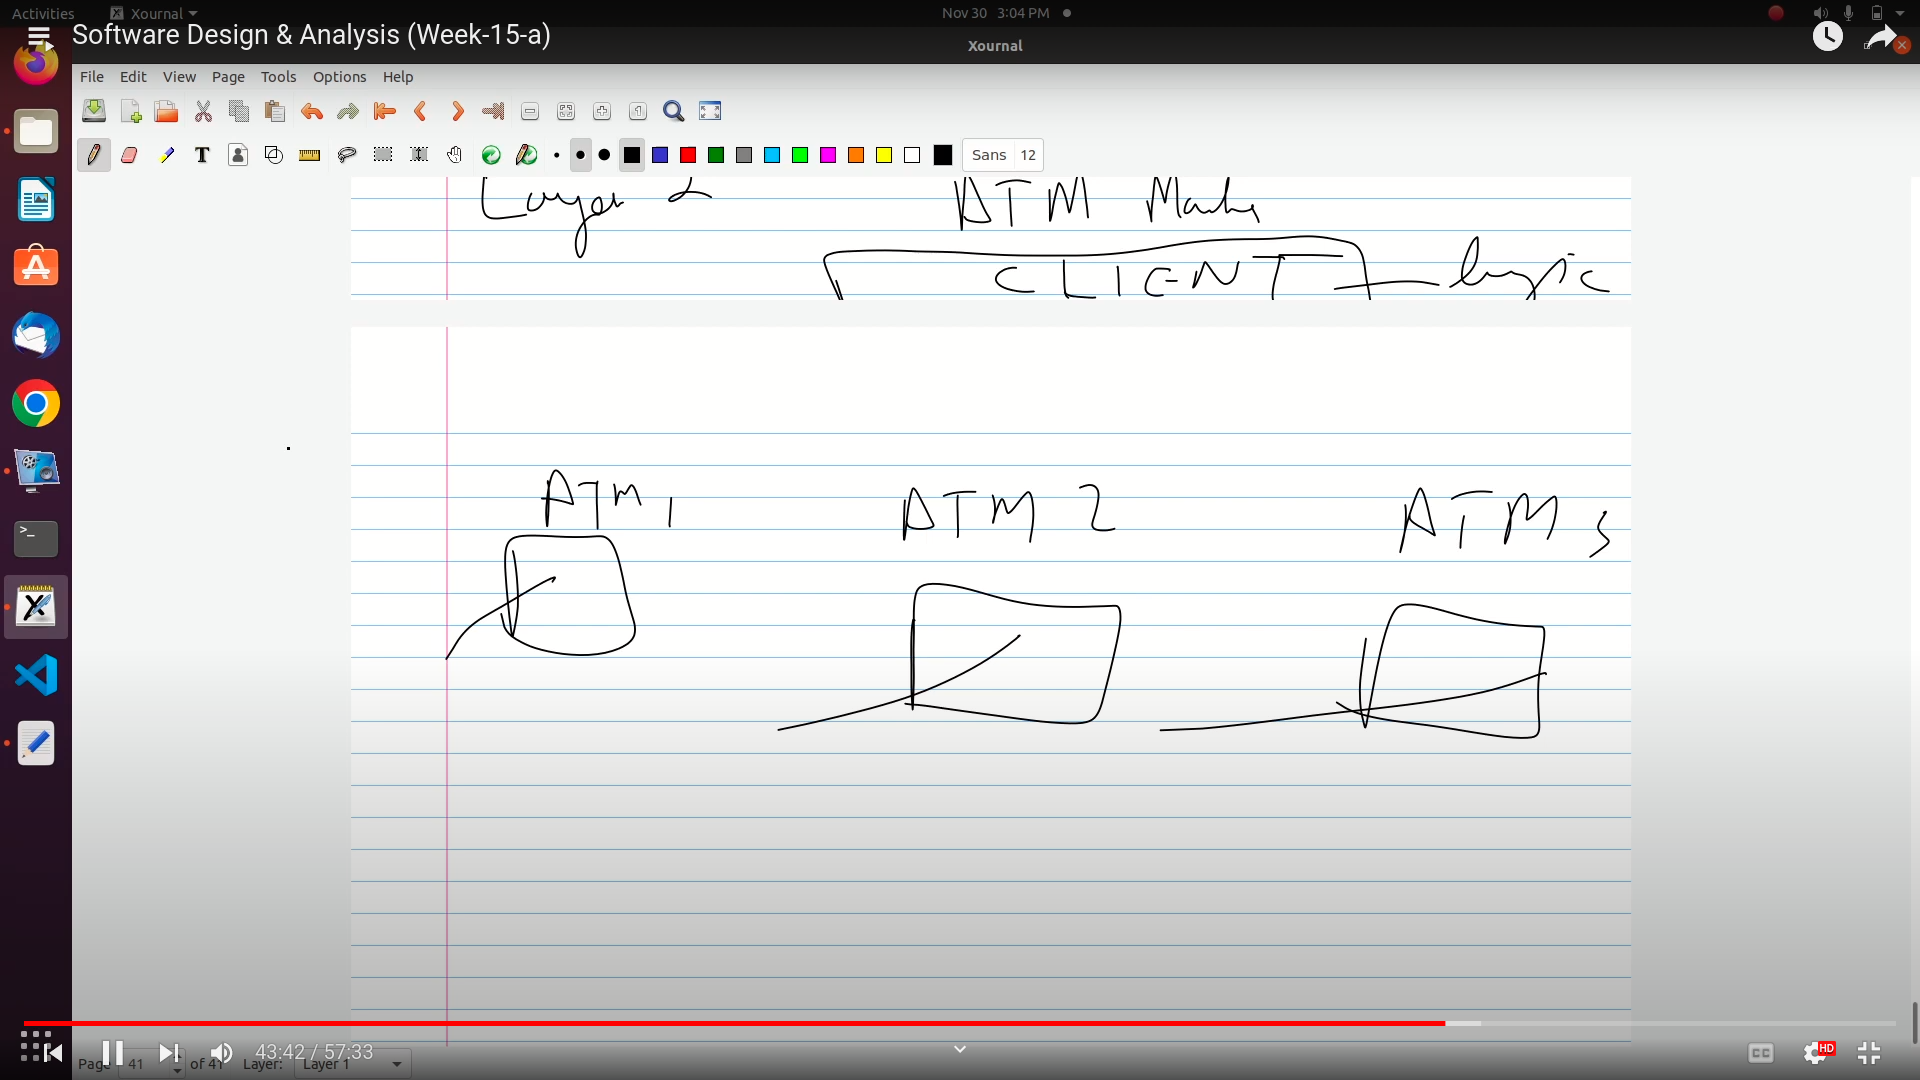 Activities Xournal Nov 30 3:04 PM
Software Design & Analysis (Week-15-a)
Xournal
File Edit View Page Tools Options Help
T Sans 12
Layer 2 ATM
CLIENT logic
ATM 1 ATM 2 ATM 3
43:42 / 57:33
CC HD
Page 41 of 41 Layer: Layer 1